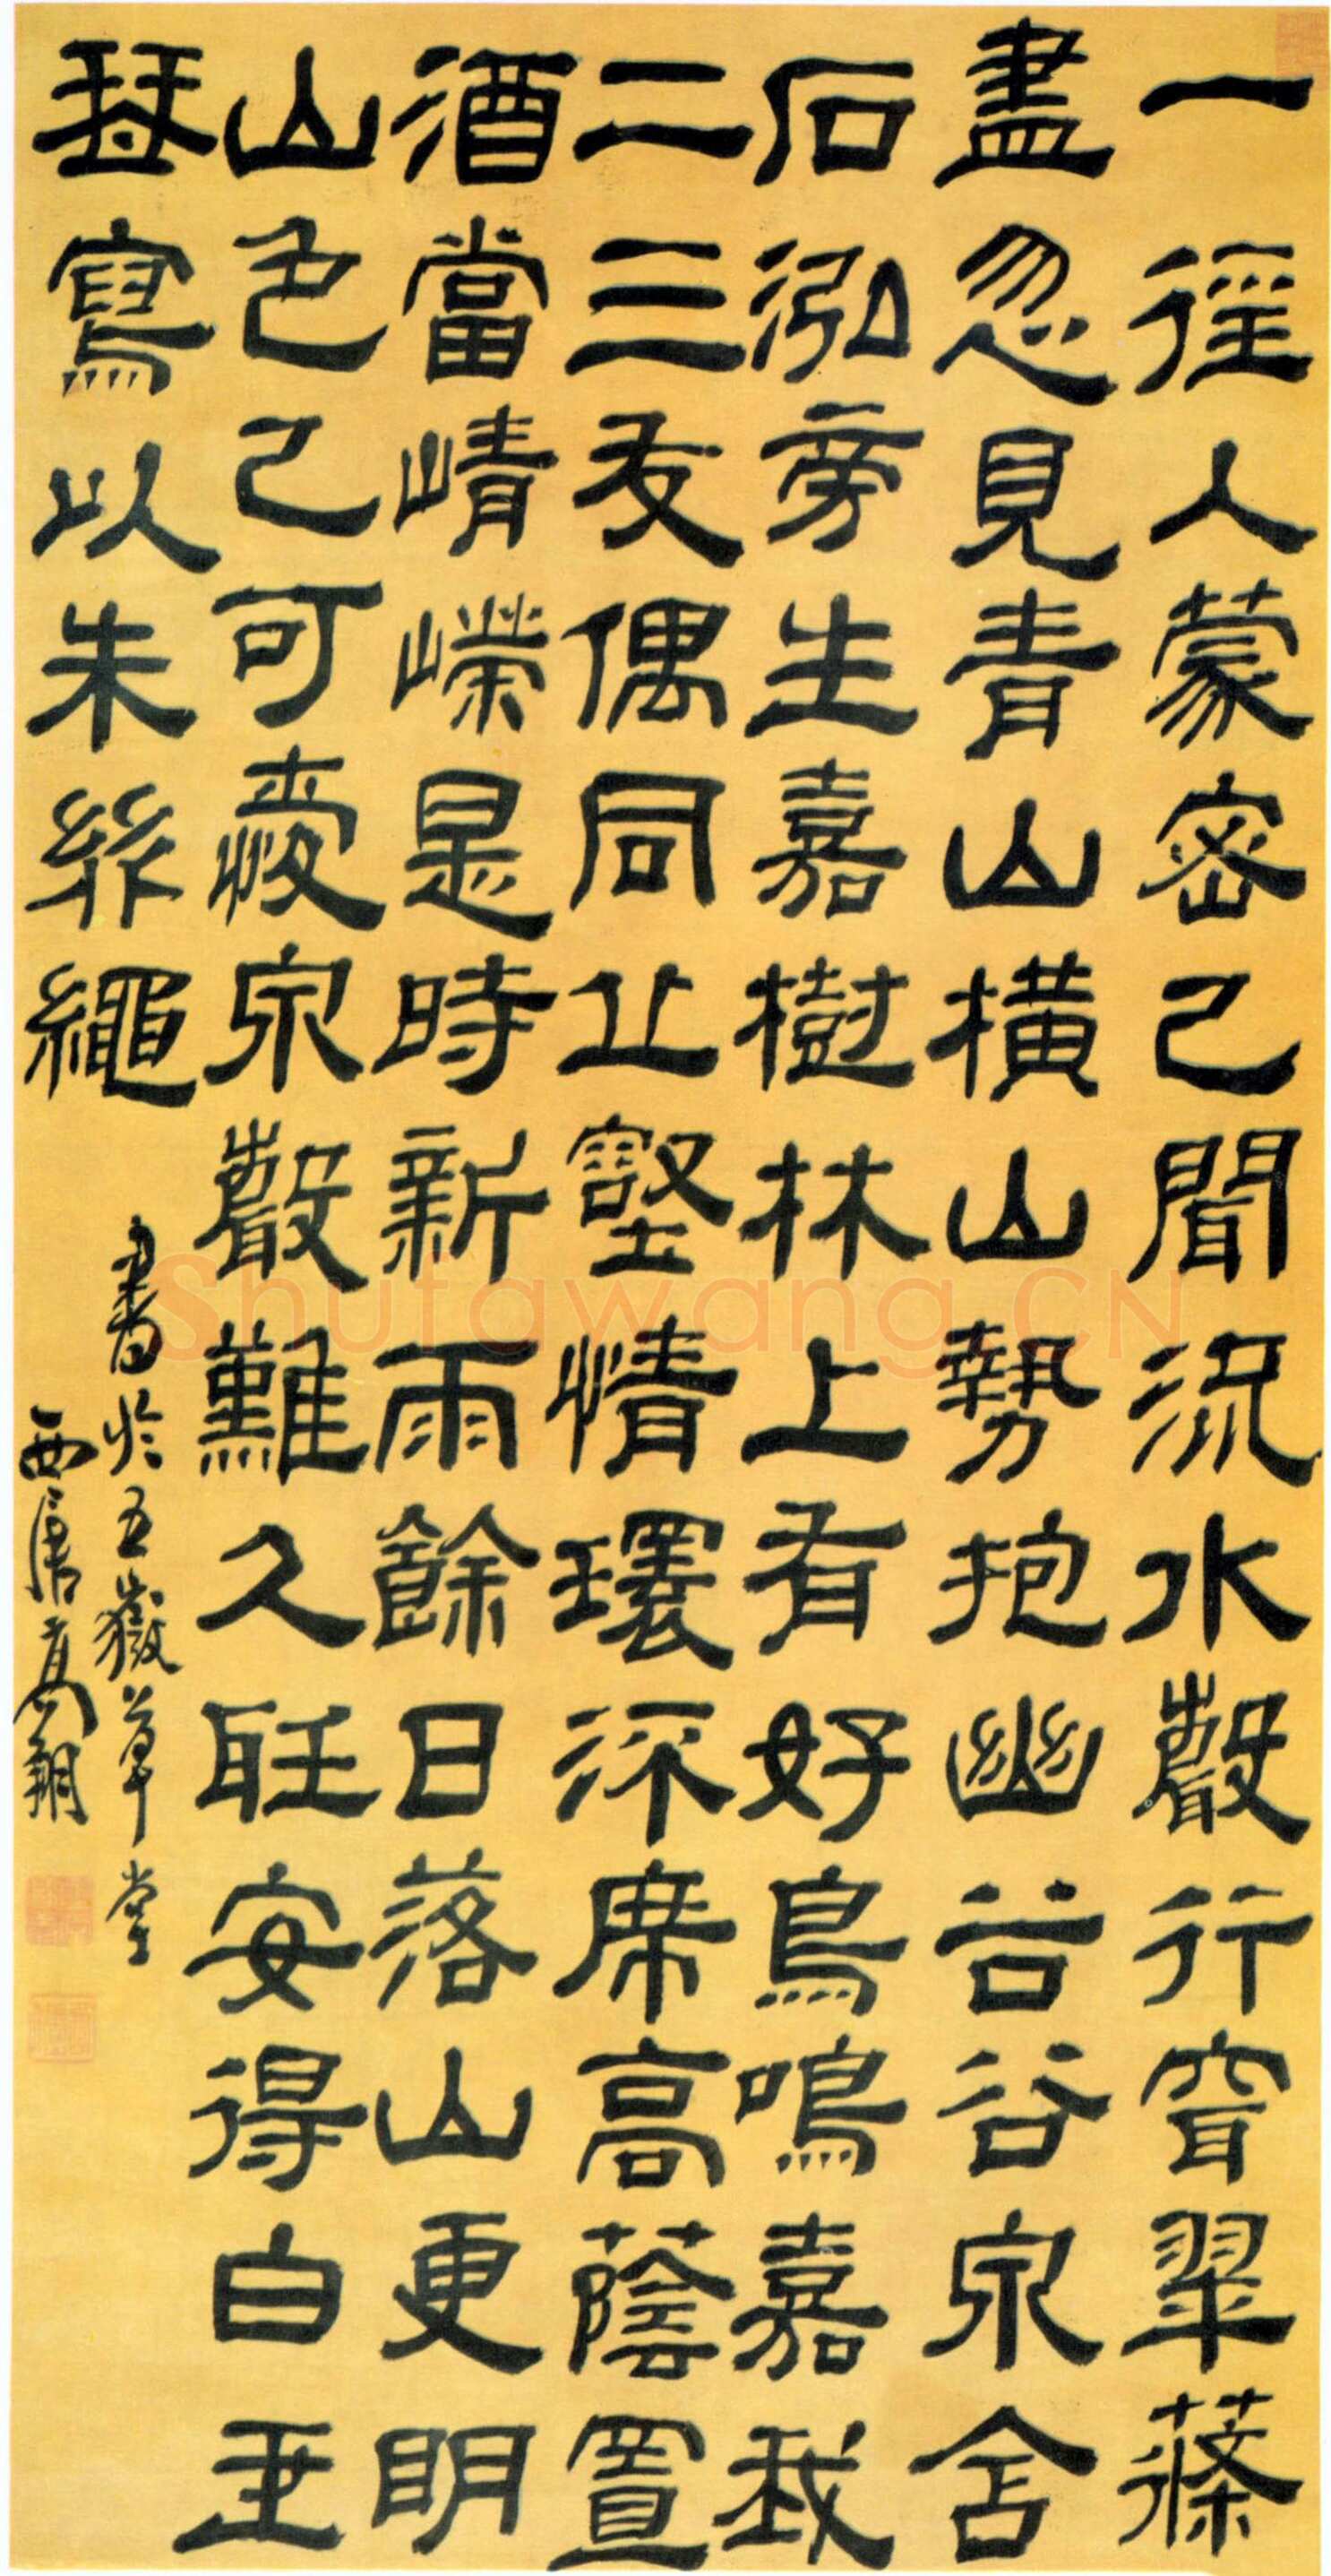 一徑入蒙密已聞流水聲行穿翠蓧
盡忽見青山橫山勢抱幽谷谷泉含
石泓旁生嘉樹林上有好鳥鳴嘉我
二三友偶同丘壑情環深席高蔭置
酒當崝嶸是時新雨餘日落山更明
山色已可愛泉聲難久聽安得白玉
琴寫以朱絲繩
書於五嶽草堂
西唐高翔
Shufawang.CN